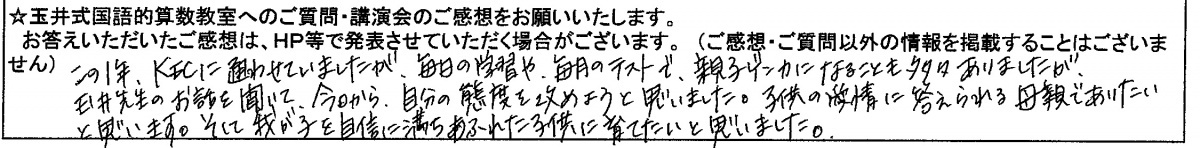 ☆玉井式国語的算数教室へのご質問・講演会のご感想をお願いいたします。
お答えいただいたご感想は、HP等で発表させていただく場合がございます。（ご感想・ご質問以外の情報を掲載することはございま
せん）この1年、KECに通わせていましたが、毎日の学習や、毎月のテストで、親子ゲンカになることも多々ありましたが、
玉井先生のお話を聞いて、今日から、自分の態度を改めようと思いました。子供の感情に答えられる母親でありたい
と思います。そして我が子を自信に満ちあふれた子供に育てたいと思いました。